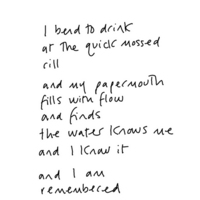 I bend to drink
at the quick mossed
rill
and my papermouth
fills with flow
and finds
the water knows me
and I know it
and I am
remembered